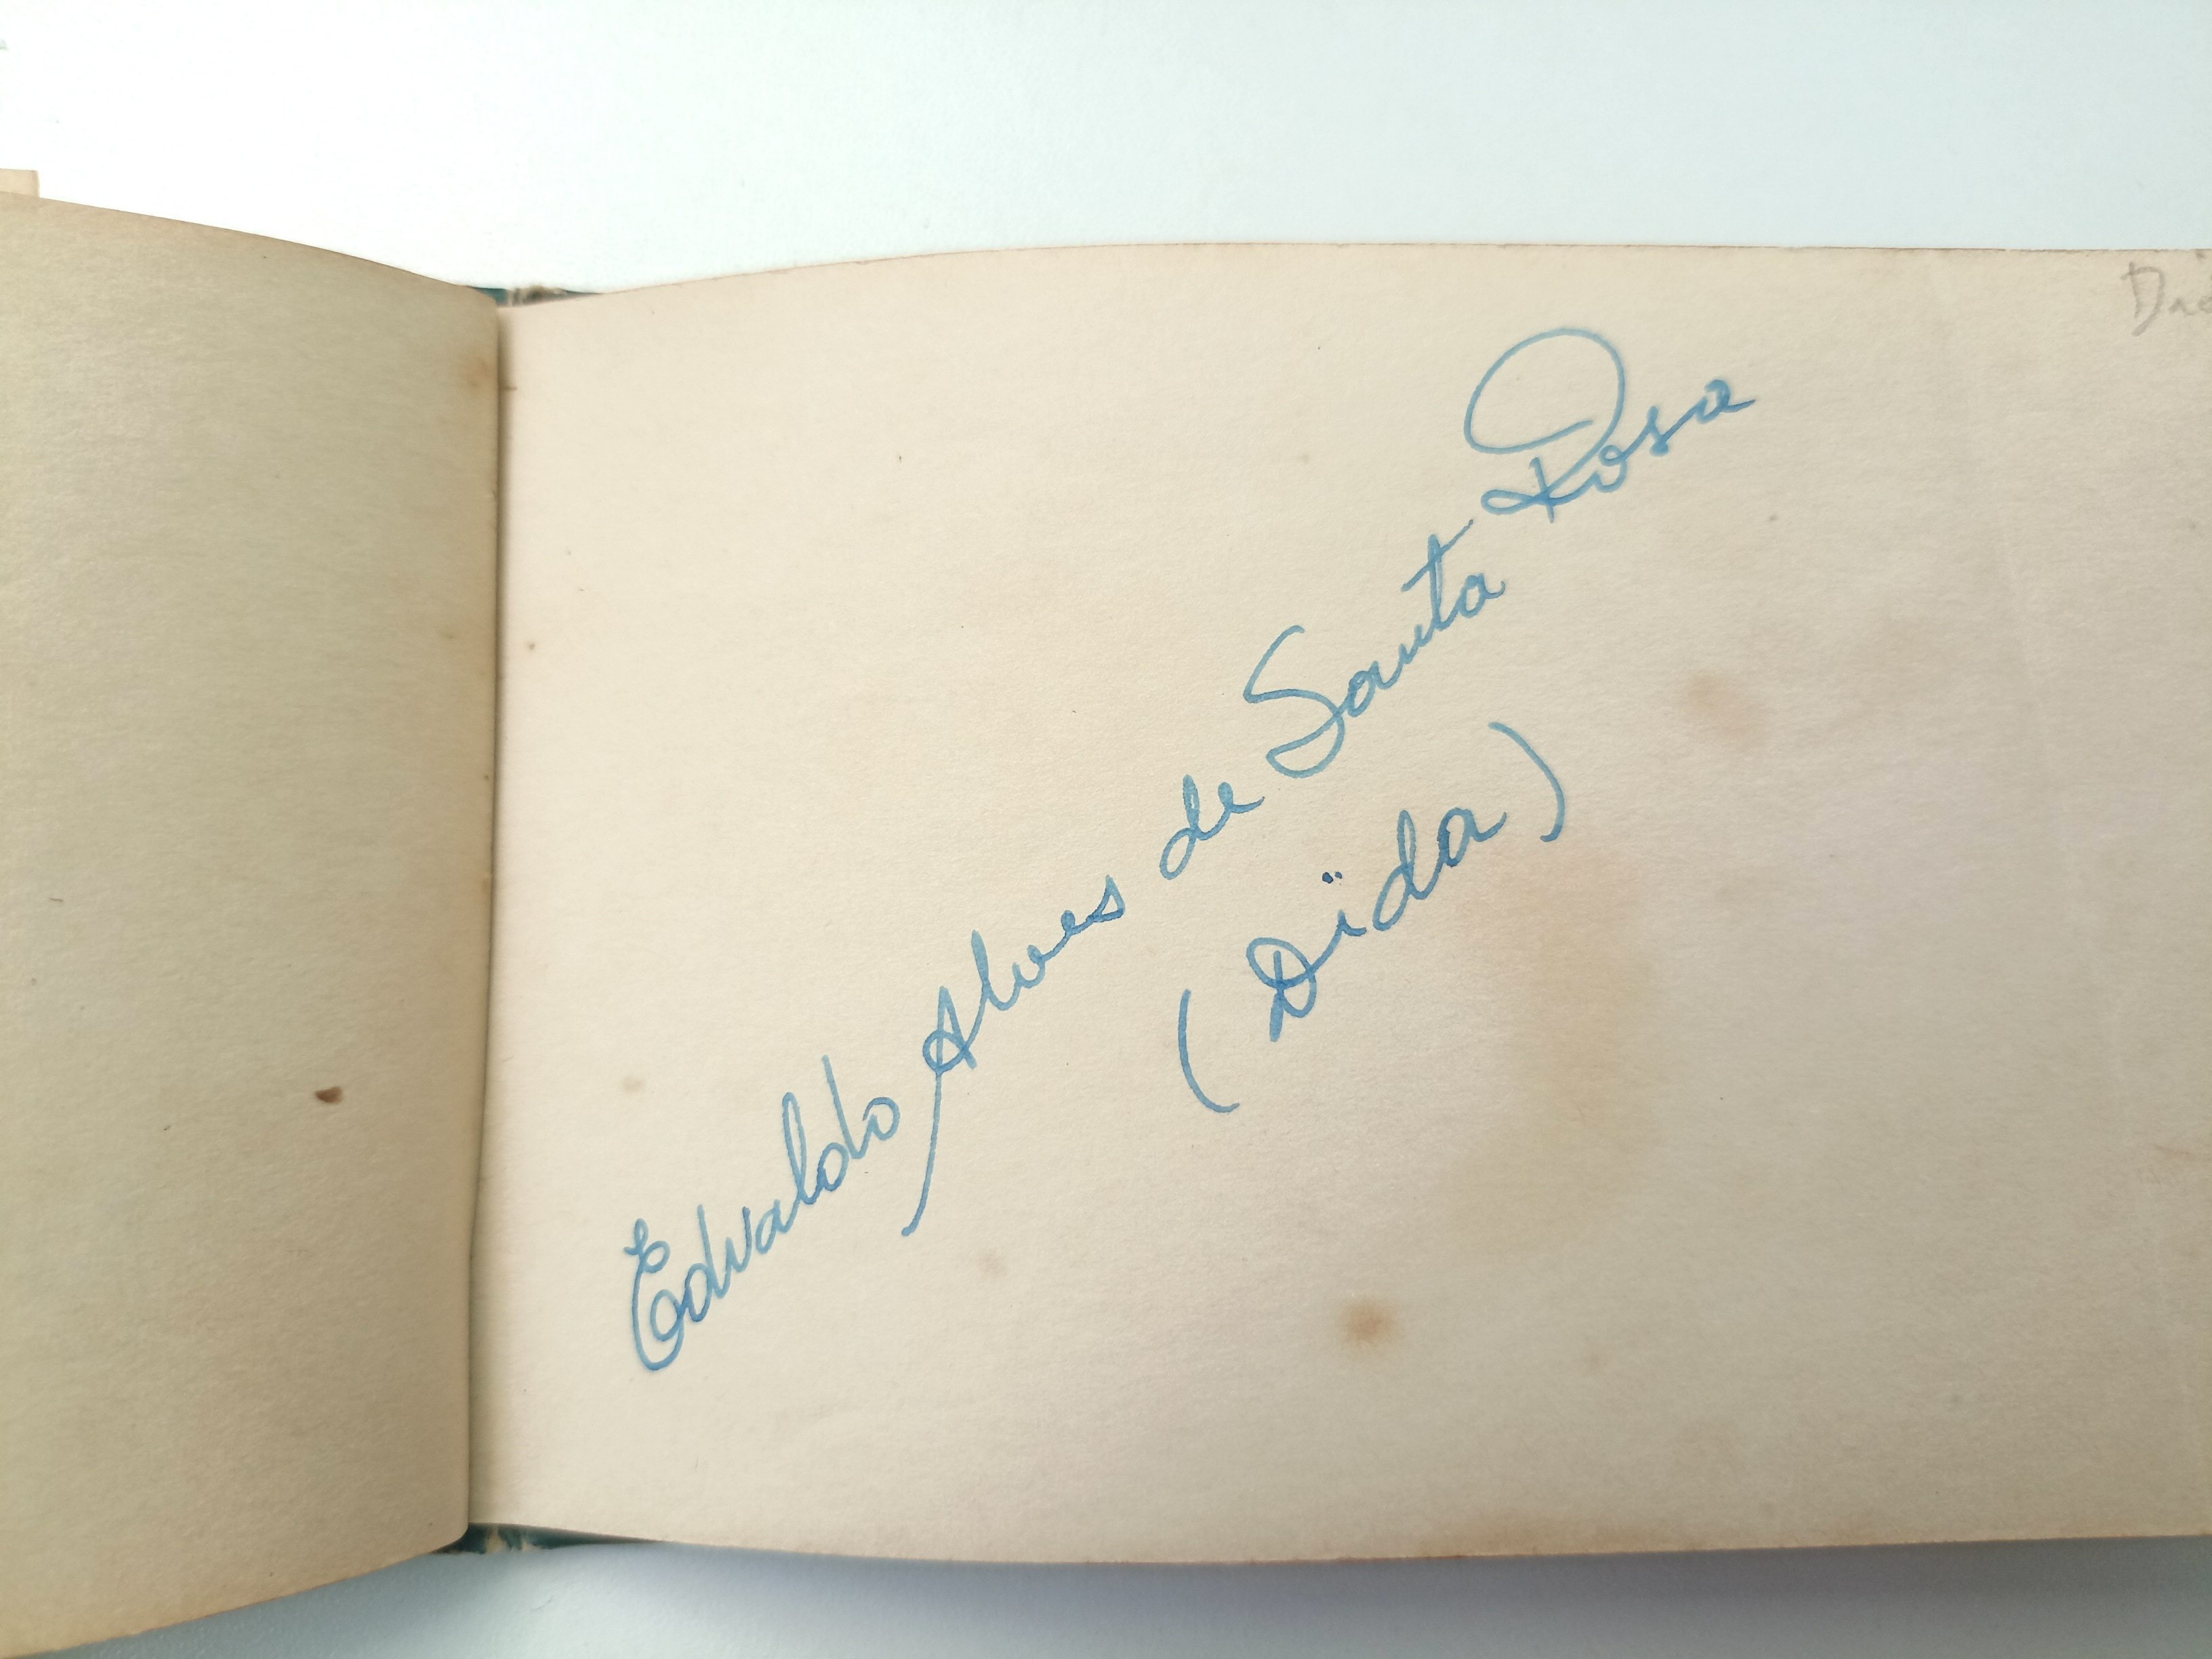 Edvaldo Alves de Santa Rosa
(Dïda)